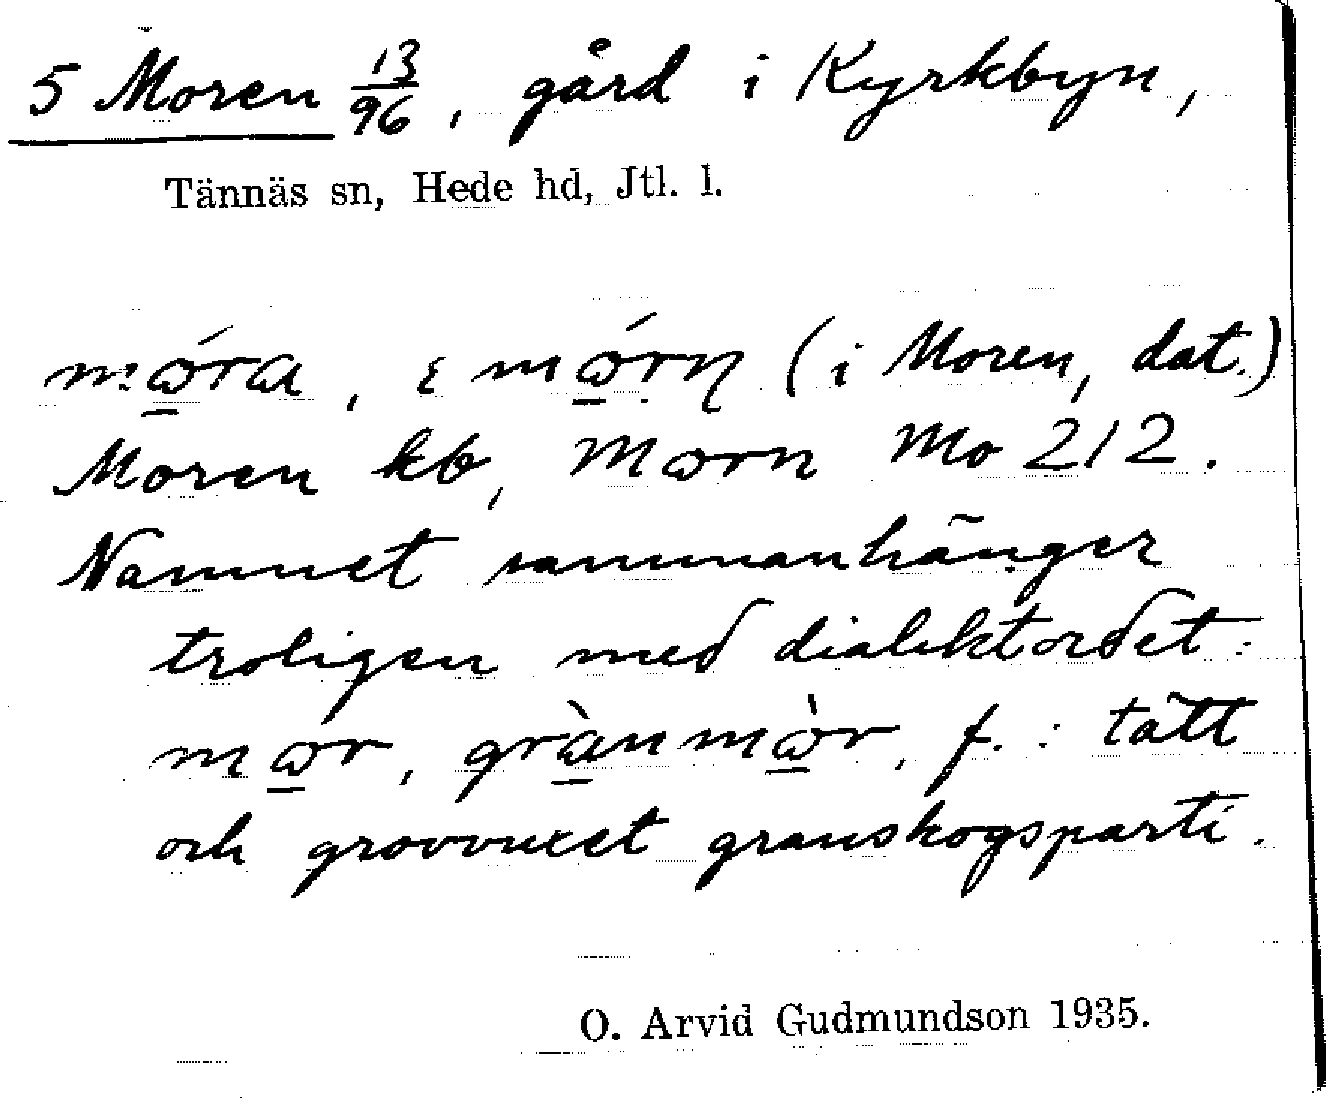 5 Moren 13/96, gård i Kyrkbyn,
Tännäs sn, Hede hd, Jtl. l.
mɷ̲́ra, ɪ mɷ̲́rn̥ (i Moren, dat.)
Moren kb, Morn Mo 212.
Namnet sammanhänger
troligen med dialektordet:
mɷ̲r, grà̲nmɷ̲̀r, f.: tätt
och grovvuxet granskogsparti.
O. Arvid Gudmundson 1935.